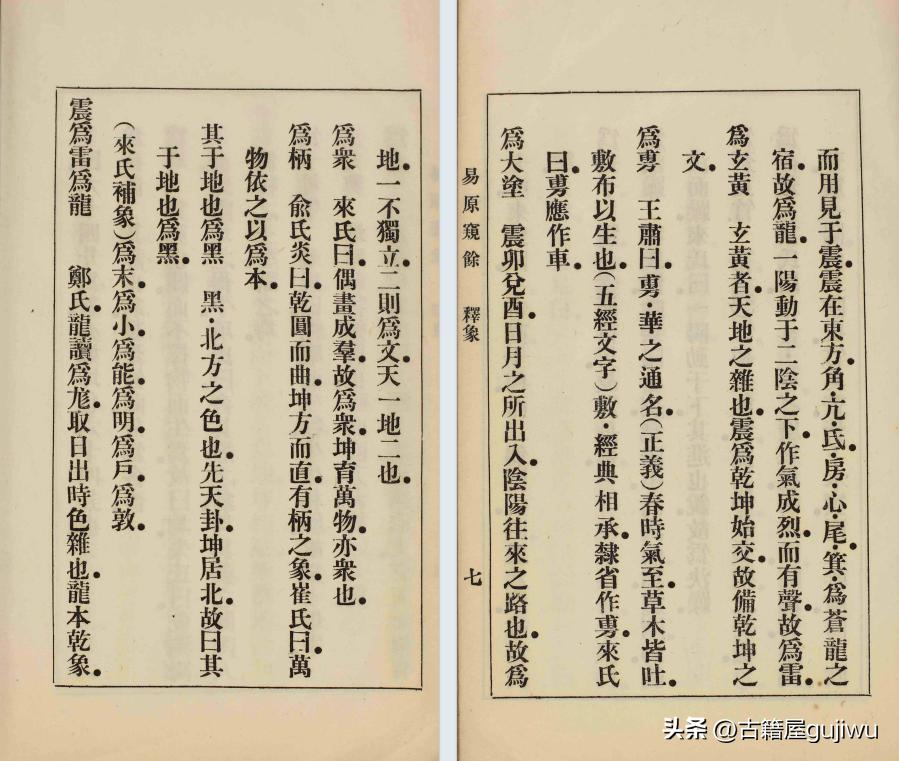 地。一不獨立。二則爲文。天一地二也。
爲衆　來氏曰。偶畫成羣。故爲衆。坤育萬物。亦衆也。
爲柄　兪氏炎曰。乾圓而曲。坤方而直。有柄之象。崔氏曰。萬
物依之以爲本。
其于地也爲黑　黑・北方之色也。先天卦。坤居北。故曰其
于地也爲黑。
（來氏補象）爲末。爲小。爲能。爲明。爲戶。爲敦。
震爲雷爲龍　鄭氏。龍讀爲尨。取日出時色雜也。龍本乾象。
易原窺餘　釋象　七
而用見于震。震在東方。角・亢・氐・房・心・尾・箕・爲蒼龍之
宿。故爲龍。一陽動于二陰之下。作氣成烈。而有聲。故爲雷。
爲玄黃　玄黃者。天地之雜也。震爲乾坤始交。故備乾坤之
文。
爲旉　王肅曰。旉・華之通名。（正義）春時氣至。草木皆吐。
敷布以生也。（五經文字）敷・經典相承。隸省作旉。來氏
曰。旉應作車。
爲大塗　震卯兌酉。日月之所出入。陰陽往來之路也。故爲
头条 @古籍屋gujiwu